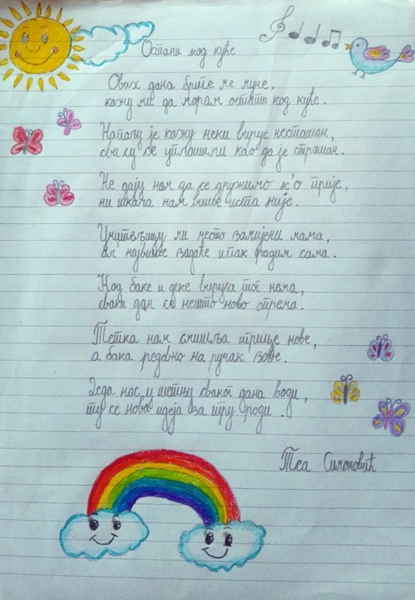 Остани код куће
Ових дана бриге ме муче,
кажу ми да морам остати код куће.
Напољу је кажу неки вирус несташан,
сви су се уплашили као да је страшан.
Не дају нам да се дружимо к'о прије,
ни школа нам више иста није.
Учитељицу ми често замијени мама,
ал' највише задаће ипак радим сама.
Код баке и деке вируса тог нема,
сваки дан се нешто ново спрема.
Тетка нам смишља игрице нове,
а бака редовно на ручак зове.
Деда нас у шетњу сваког дана води,
ту се нова идеја за игру роди.
Теа Симоновић